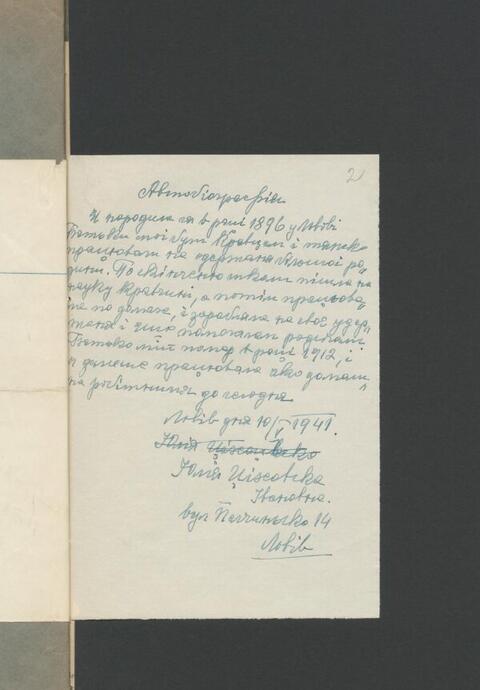 2
Автобіографія
Я народилася в році 1896 у Львові
Батько мій був Кравцем і тяжко
працював на одержання більшої ро„
дини. По скінченню школи пішла на
науку кравчині, а потім працюва„
ла по домах, і заробляла на своє удер„
жання і ще помагала родичам
Батько мій помер в році 1912, і
я дальше працювала яко домаш„
на робітниця до сегодня
Львів дня 10/V 1941.
Юлія
Юлія
Івановна.
вул 14
Львів